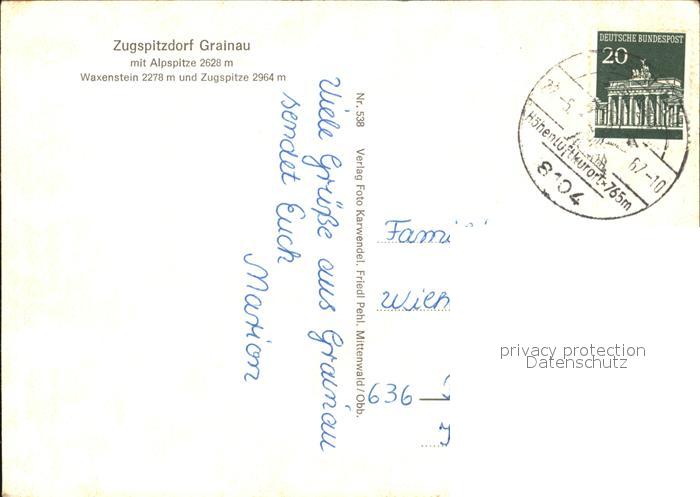 Zugspitzdorf Grainau
mit Alpspitze 2628 m
Waxenstein 2278 m und Zugspitze 2964 m
Viele Grüße aus Grainau
sendet Euch
Marion
Nr. 538 Verlag Foto Karwendel. Friedl Pehl. Mittenwald/Obb.
DEUTSCHE BUNDESPOST
20
67-10
Höhenluftkurort-765m
8104
Fami
636
privacy protection
Datenschutz